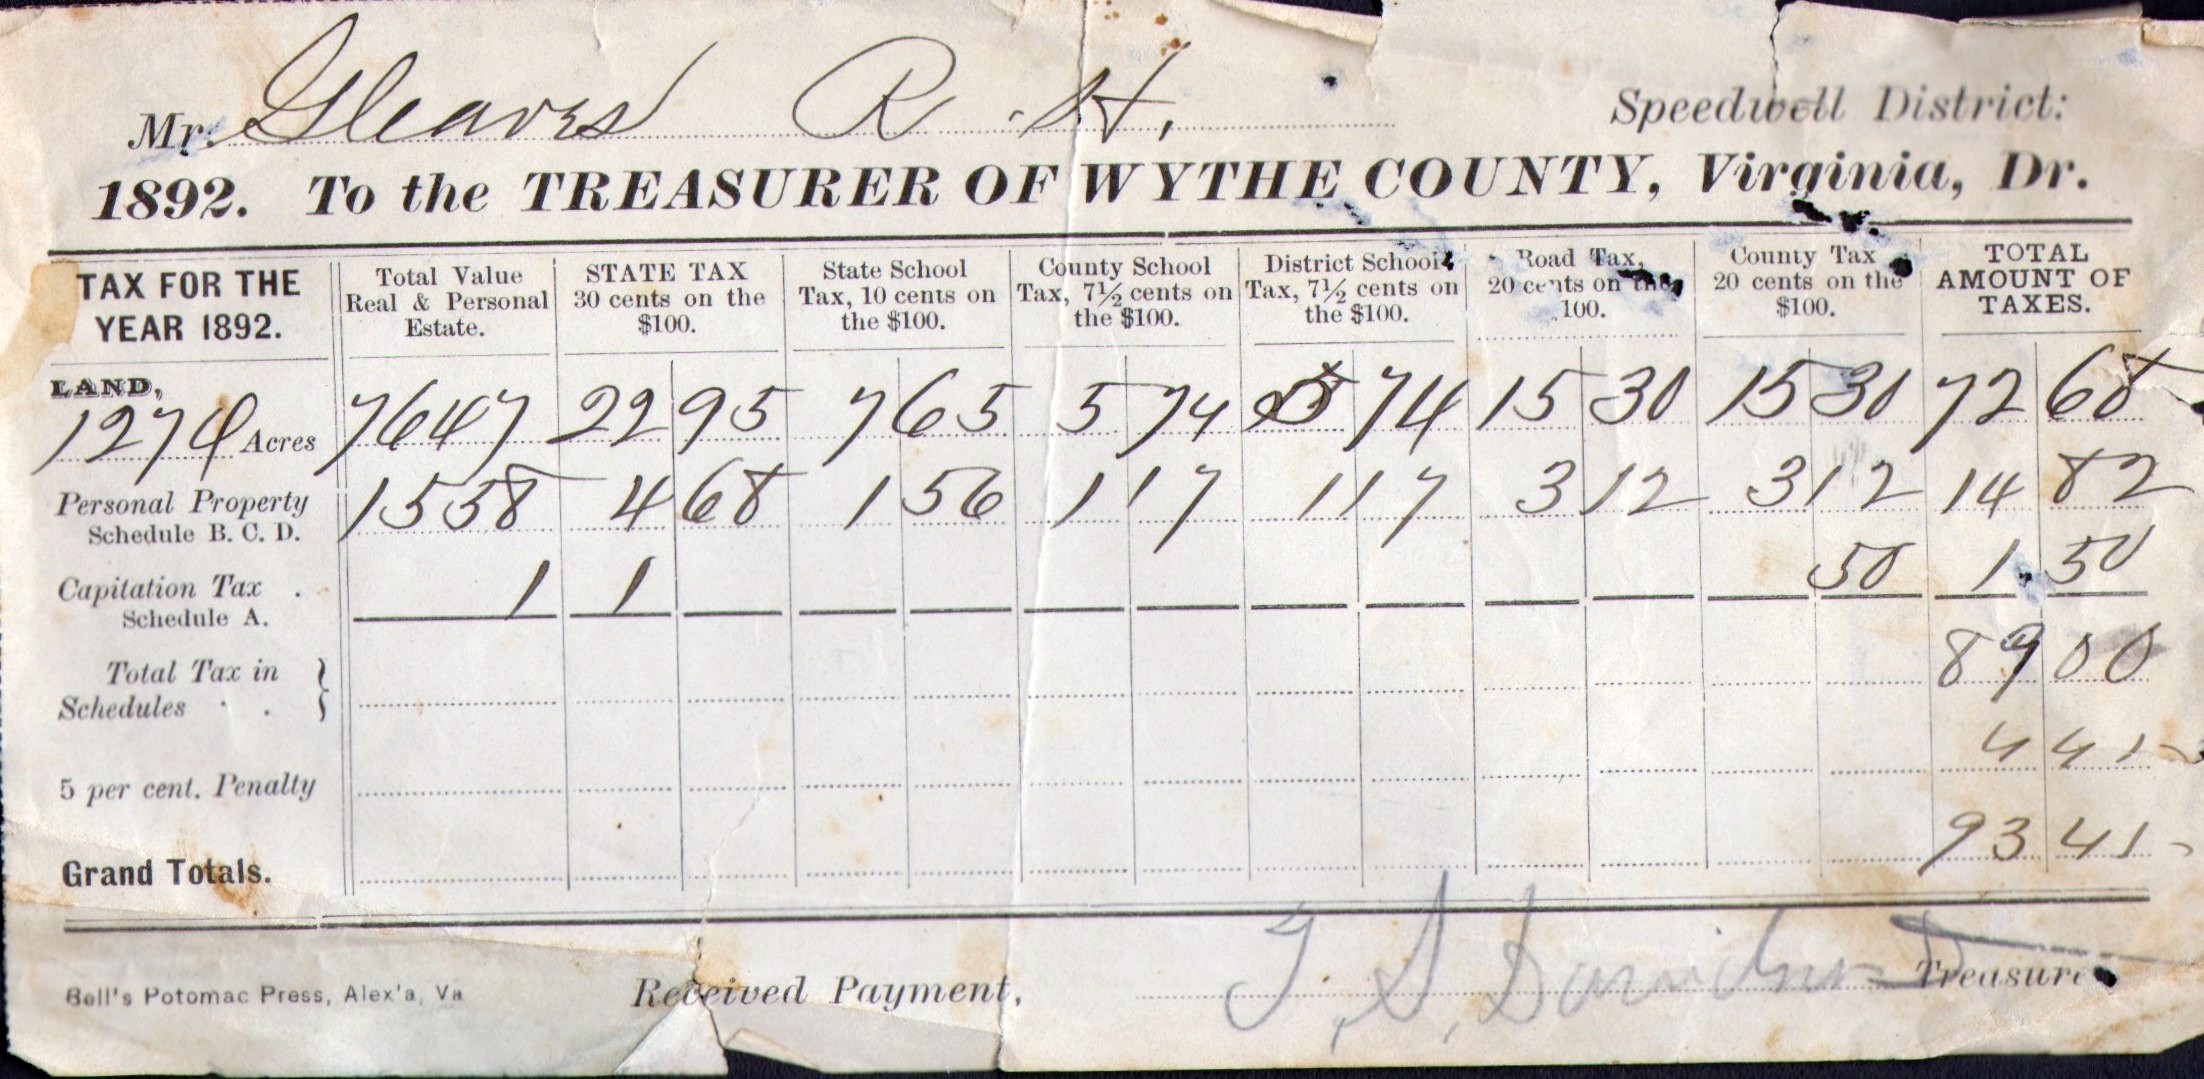 Mr. Gleaves R. H.
Speedwell District:
1892. To the TREASURER OF WYTHE COUNTY, Virginia, Dr.
TAX FOR THE YEAR 1892. Total Value Real & Personal Estate. STATE TAX 30 cents on the $100. State School Tax, 10 cents on the $100. County School Tax, 7½ cents on the $100. District School Tax, 7½ cents on the $100. Road Tax, 20 cents on the 100. County Tax 20 cents on the $100. TOTAL AMOUNT OF TAXES.
LAND,
1274 Acres 7647 22 95 7 65 5 74 5 74 15 30 15 30 72 68
Personal Property 1558 4 68 1 56 1 17 1 17 3 12 3 12 14 82
Schedule B. C. D.
Capitation Tax . 1 1 50 1.50
Schedule A.
Total Tax in 89 00
Schedules . .
5 per cent. Penalty 4 45
Grand Totals. 93 45
Bell's Potomac Press, Alex'a, Va
Received Payment, Treasurer